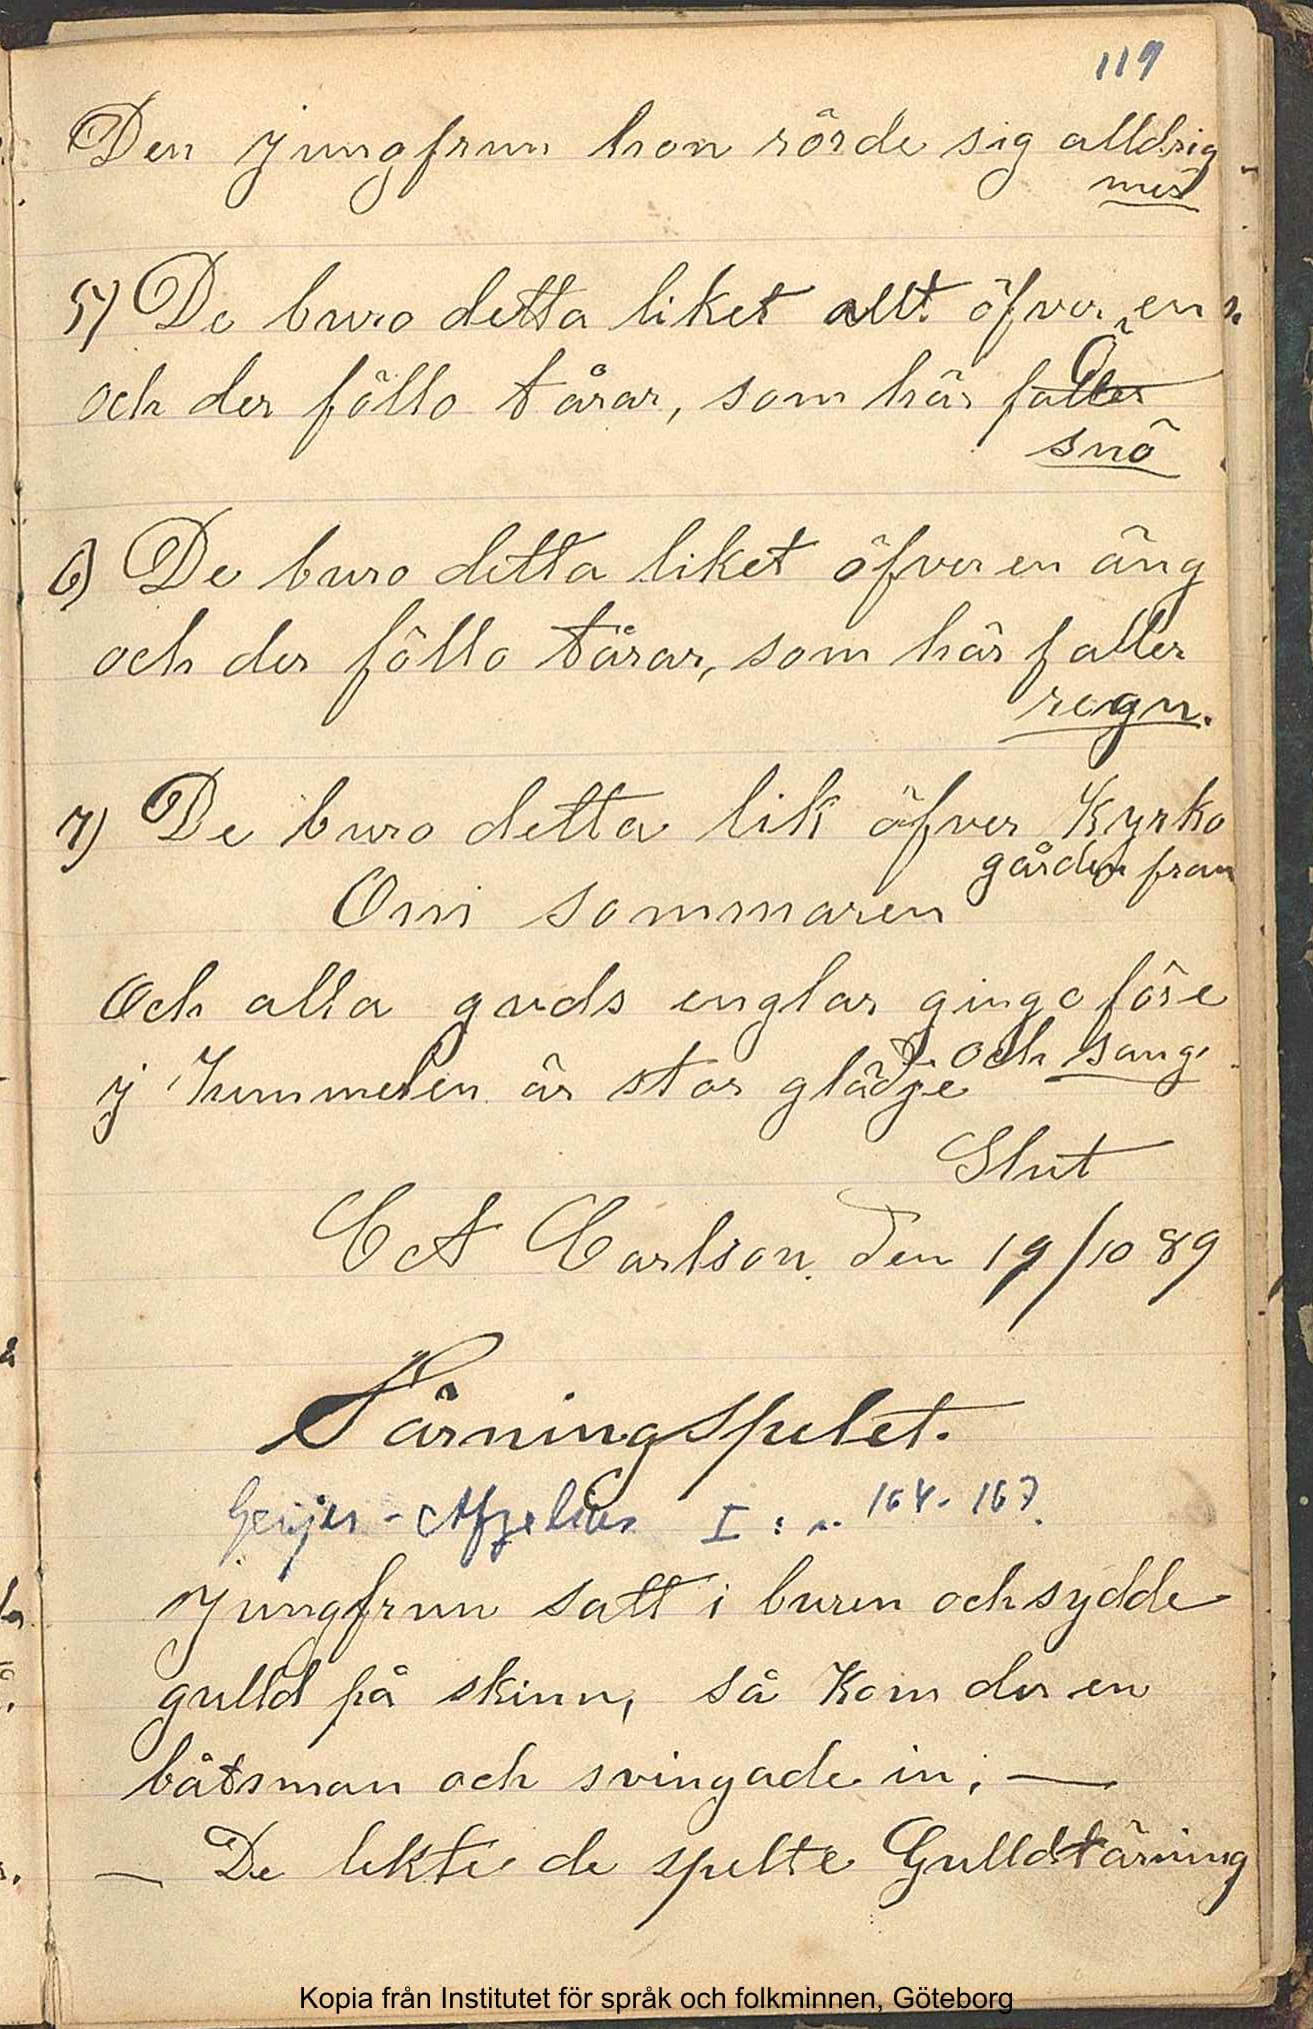 119
Den jungfrun hon rörde sig alldrig
mer
5) De buro detta liket allt öfver en
Ö
och der föllo tårar, som här faller
snö
6) De buro detta liket öfver en äng
och der föllo tårar, som här faller
regn.
7) De buro detta lik öfver Kyrko
gården fram
Om sommaren
Och alla guds englar gingo före
och sang
j himmelen är stor glädje
Slut
C A Carlson. Den 19/10 89
Tärningspelet.
Geijer - Afzelius I : s. 164-167.
Jungfrun satt i buren och sydde
gulld på skinn, så Kom der en
båtsman och svingade in. —
— De lekte de spelte Gulldtärning
Kopia från Institutet för språk och folkminnen, Göteborg